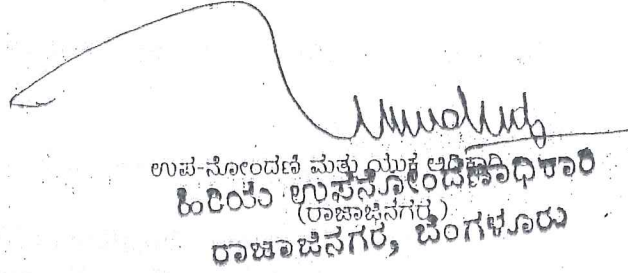 ಉಪ-ನೋಂದಣಿ ಮತ್ತು ಯುಕ್ತ ಅಧಿಕಾರಿ
ಹಿರಿಯ ಉಪನೋಂದಣಾಧಿಕಾರಿ
(ರಾಜಾಜಿನಗರ)
ರಾಜಾಜಿನಗರ, ಬೆಂಗಳೂರು